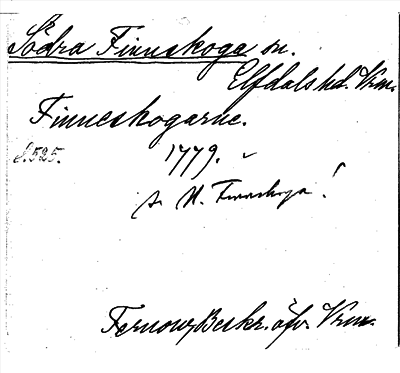 Södra Finnskoga sn.
Elfdals hd. Vrm.
Finneskogarne.
S. 525. 1779.
N. Finnskoga!
Fernow, Beskr. öfv. Vrm.